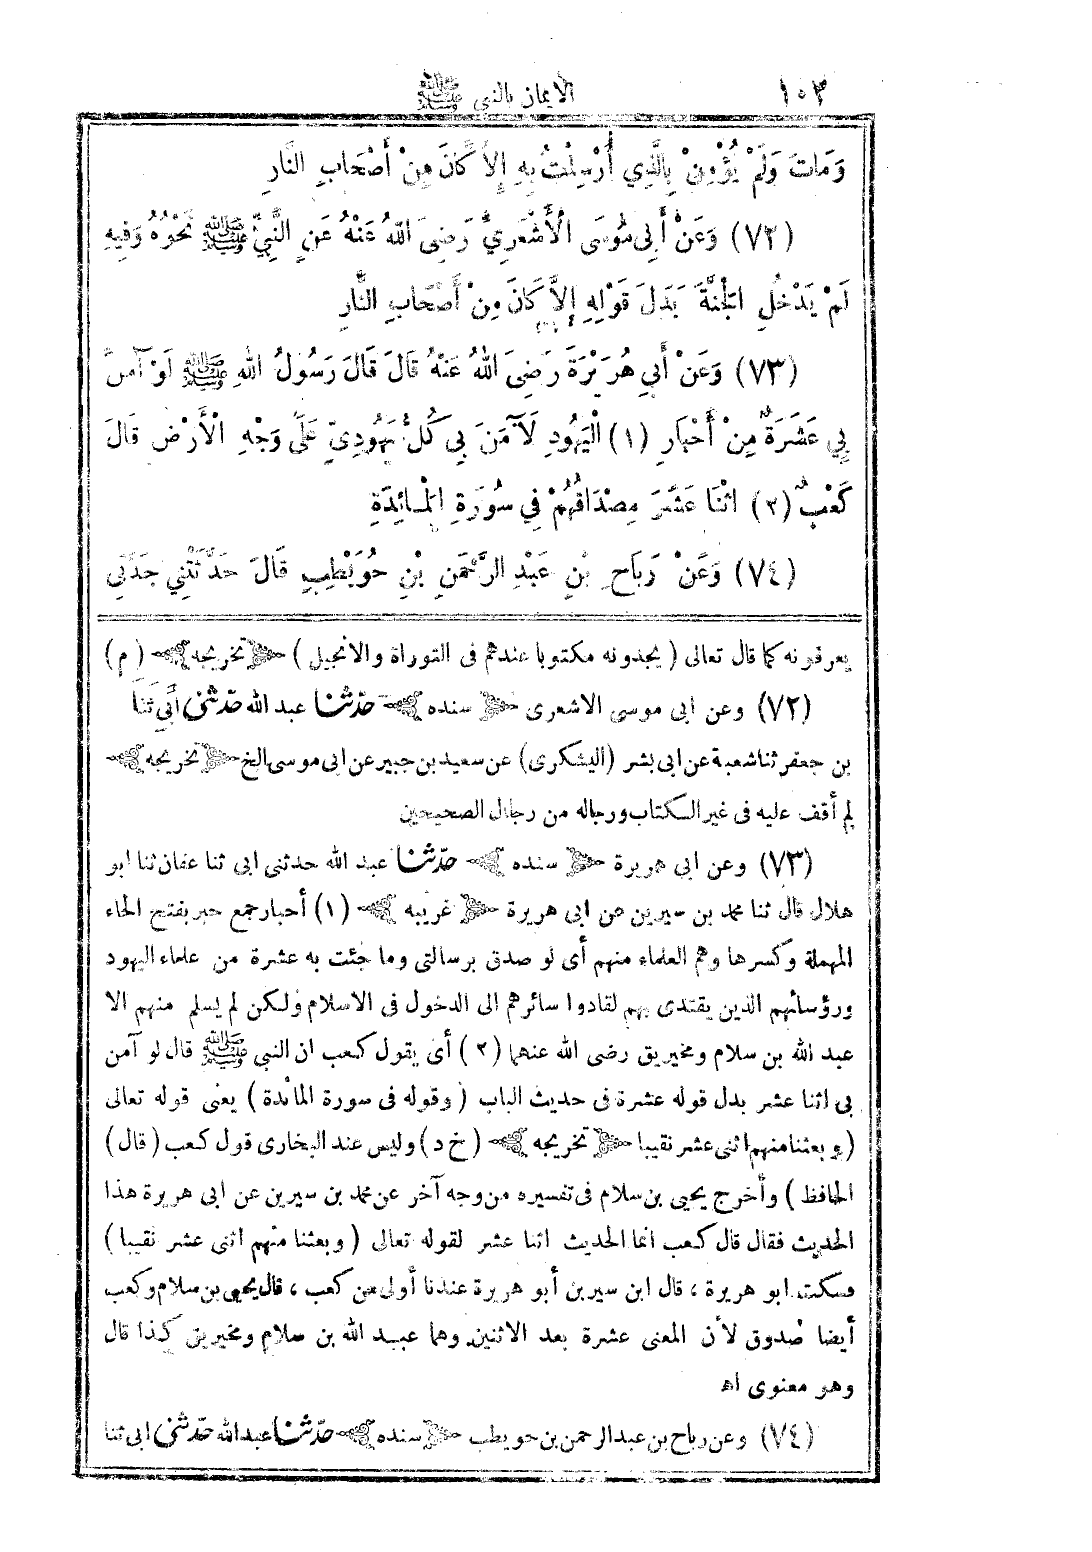 ١٠٣ الايمان بالنبي ﷺ
وَمَاتَ وَلَمْ يُؤْمِنْ بِالَّذِي أُرْسِلْتُ بِهِ إِلاَّ كَانَ مِنْ أَصْحَابِ النَّارِ
(٧٢) وَعَنْ أَبِي مُوسَى الْأَشْعَرِيِّ رَضِيَ اللهُ عَنْهُ عَنِ النَّبِيِّ ﷺ نَحْوُهُ وَفِيهِ
لَمْ يَدْخُلِ الْجَنَّةَ بَدَلَ قَوْلِهِ إِلاَّ كَانَ مِنْ أَصْحَابِ النَّارِ
(٧٣) وَعَنْ أَبِي هُرَيْرَةَ رَضِيَ اللهُ عَنْهُ قَالَ قَالَ رَسُولُ اللهِ ﷺ لَوْ آمَنَ
بِي عَشَرَةٌ مِنْ أَحْبَارِ (١) الْيَهُودِ لَآمَنَ بِي كُلُّ يَهُودِيٍّ عَلَى وَجْهِ الْأَرْضِ قَالَ
كَعْبٌ (٢) اثْنَا عَشَرَ مِصْدَاقُهُمْ فِي سُورَةِ الْمَائِدَةِ
(٧٤) وَعَنْ رَبَاحِ بْنِ عَبْدِ الرَّحْمَنِ بْنِ حُوَيْطِبٍ قَالَ حَدَّثَتْنِي جَدَّتِي
يعرفونه كما قال تعالى (يجدونه مكتوبا عندهم فى التوراة والانجيل) ﴿تخريجه﴾ (م)
(٧٢) وعن ابى موسى الاشعرى ﴿سنده﴾ حدّثنا عبد الله حدّثنى أبى ثنا
بن جعفر ثنا شعبة عن ابى بشر (اليشكرى) عن سعيد بن جبير عن ابى موسى الخ ﴿تخريجه﴾
لم أقف عليه فى غير الكتاب ورجاله من رجال الصحيحين
(٧٣) وعن ابى هريرة ﴿سنده﴾ حدّثنا عبد الله حدثنى ابى ثنا عفان ثنا ابو
هلال قال ثنا محمد بن سيرين عن ابى هريرة ﴿غريبه﴾ (١) أحبار جمع حبر بفتح الحاء
المهملة وكسرها وهم العلماء منهم أى لو صدق برسالتى وما جئت به عشرة من علماء اليهود
ورؤسائهم الذين يقتدى بهم لقادوا سائرهم الى الدخول فى الاسلام ولكن لم يسلم منهم الا
عبد الله بن سلام ومخيريق رضى الله عنهما (٢) أى يقول كعب ان النبي ﷺ قال لو آمن
بى اثنا عشر بدل قوله عشرة فى حديث الباب (وقوله فى سورة المائدة) يعنى قوله تعالى
(وبعثنا منهم اثنى عشر نقيبا ﴿تخريجه﴾ (خ د) وليس عند البخارى قول كعب (قال)
الحافظ) وأخرج يحيى بن سلام فى تفسيره من وجه آخر عن محمد بن سيرين عن ابى هريرة هذا
الحديث فقال قال كعب انما الحديث اثنا عشر لقوله تعالى (وبعثنا منهم اثنى عشر نقيبا)
فسكت ابو هريرة ، قال ابن سيرين أبو هريرة عندنا أولى من كعب ، قال يحيى بن سلام وكعب
أيضا صدوق لأن المعنى عشرة بعد الاثنين وهما عبد الله بن سلام ومخيريق كذا قال
وهو معنوى اه
(٧٤) وعن رباح بن عبد الرحمن بن حويطب ﴿سنده﴾ حدّثنا عبد الله حدّثنى ابى ثنا